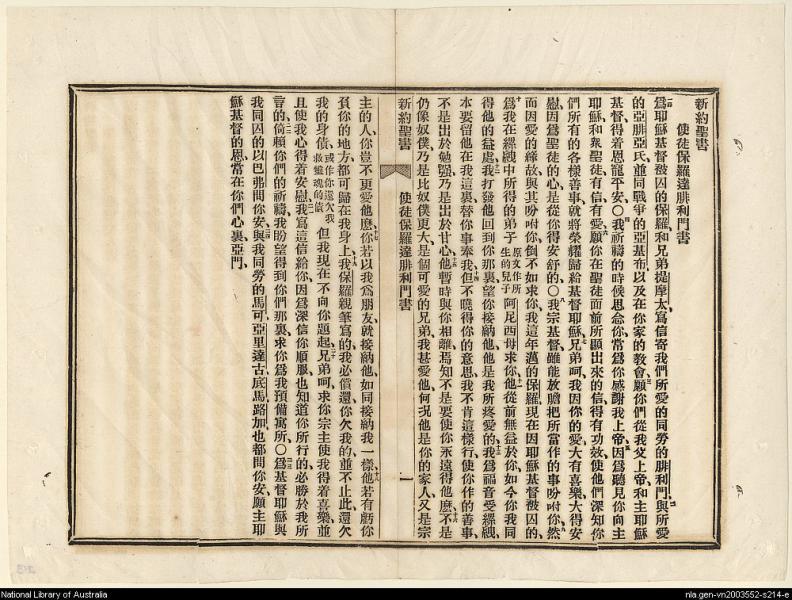 新約聖書
使徒保羅達腓利門書
爲耶穌基督被囚的保羅和兄弟提摩太寫信寄我們所愛的同勞的腓利門與所愛
的亞腓亞氏並同戰爭的亞基布以及在你家的教會願你們從我父上帝和主耶穌
基督得着恩寵平安〇我祈禱的時候思念你常爲你感謝我上帝因爲聽見你向主
耶穌和衆聖徒有信有愛願你在聖徒面前所顯出來的信得有功效使他們深知你
們所有的各樣善事就將榮耀歸給基督耶穌兄弟呵我因你的愛大有喜樂大得安
慰因爲聖徒的心是從你得安舒的〇我宗基督雖能放膽把所當作的事吩咐你然
而因愛的緣故與其吩咐你倒不如求你我這年邁的保羅現在因耶穌基督被囚的
爲我在縲絏中所得的弟子原文作所生的兒子阿尼西母求你他從前無益於你如今你我同
得他的益處我打發他回到你那裏望你接納他他是我所疼愛的我爲福音受縲絏
本要留他在我這裏替你事奉我但不曉得你的意思我不肯這樣行使你作的善事
不是出於勉強乃是出於甘心他暫時與你相離焉知不是要使你永遠得他麽不是
仍像奴僕乃是比奴僕更大是個可愛的兄弟我甚愛他何况他是你的家人又是宗
新約聖書 使徒保羅達腓利門書 一
主的人你豈不更愛他麽你若以我爲朋友就接納他如同接納我一樣他若有虧你
負你的地方都可歸在我身上我保羅親筆寫的我必償還你欠我的並不止此還欠
我的身債或作你還欠我救靈魂的債但我現在不向你題起兄弟呵求你宗主使我得着喜樂並
且使我心得着安慰我寫這信給你因爲深信你順服也知道你所行的必勝於我所
言的倚賴你們的祈禱我盼望得到你們那裏求你爲我預備寓所〇爲基督耶穌與
我同囚的以巴弗問你安與我同勞的馬可亞里達古底馬路加也都問你安願主耶
穌基督的恩常在你們心裏亞門
National Library of Australia
nla.gen-vn2003552-s214-e